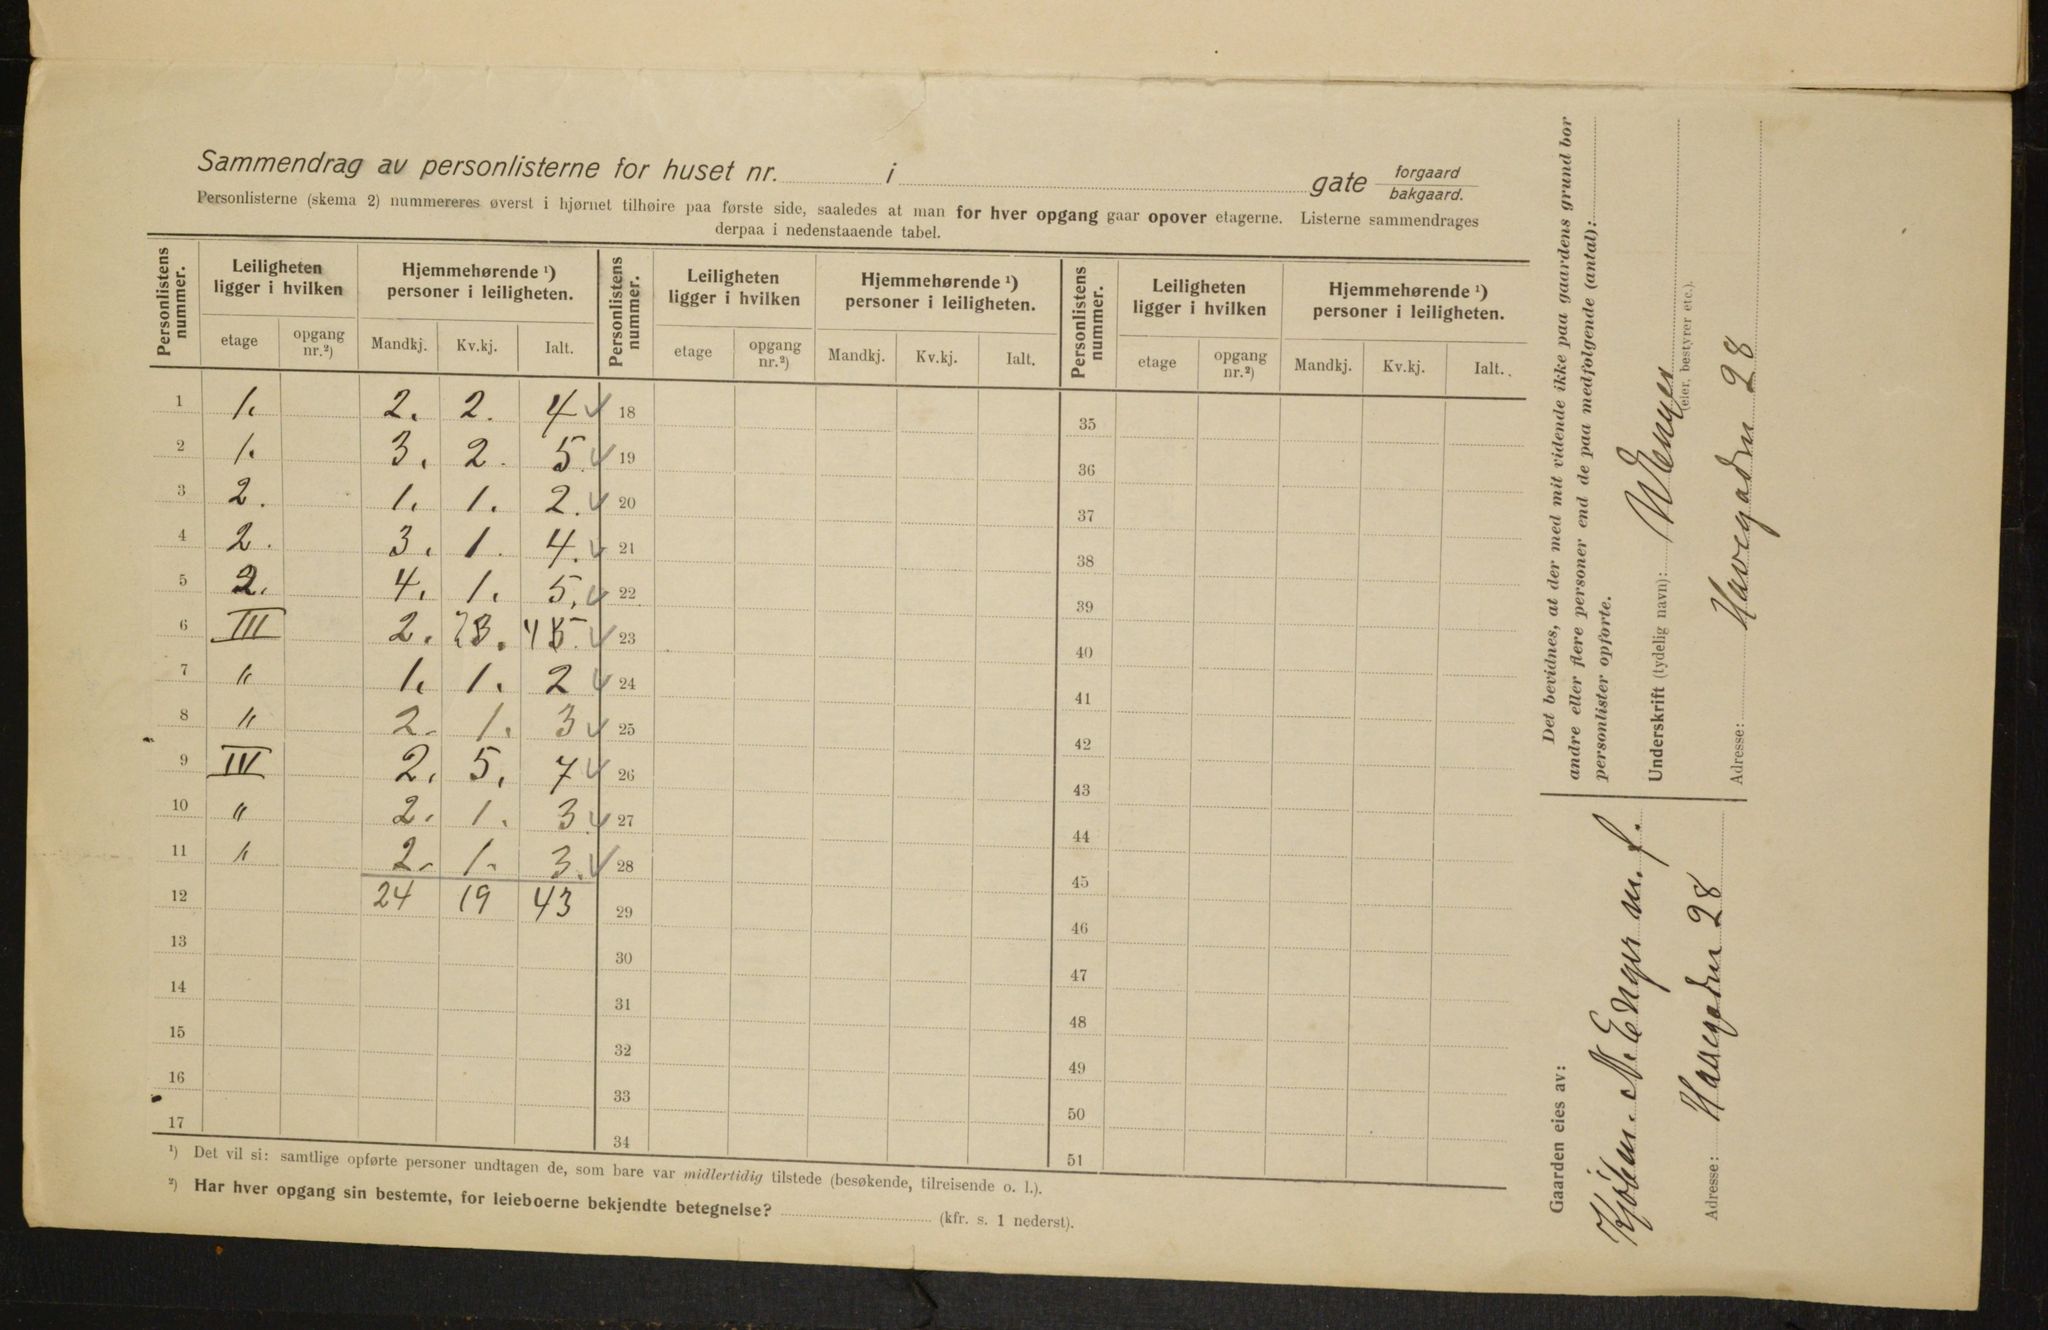 Sammendrag av personlisterne for huset nr. i gate forgaard
bakgaard.
Personlisterne (skema 2) nummereres øverst i hjørnet tilhøire paa første side, saaledes at man for hver opgang gaar opover etagerne. Listerne sammendrages
derpaa i nedenstaaende tabel.
Personlistens nummer. Leiligheten ligger i hvilken Hjemmehørende ¹) personer i leiligheten. Personlistens nummer. Leiligheten ligger i hvilken Hjemmehørende ¹) personer i leiligheten. Personlistens nummer. Leiligheten ligger i hvilken Hjemmehørende ¹) personer i leiligheten.
etage opgang nr.²) Mandkj. Kv.kj. Ialt. etage opgang nr.²) Mandkj. Kv.kj. Ialt. etage opgang nr.²) Mandkj. Kv.kj. Ialt.
1 1. 2. 2. 4 18 35
2 1. 3. 2. 5. 19 36
3 2. 1. 1. 2. 20 37
4 2. 3. 1. 4. 21 38
5 2. 4. 1. 5. 22 39
6 III 2. 23. 45. 23 40
7 " 1. 1. 2 24 41
8 " 2. 1. 3 25 42
9 IV 2. 5. 7 26 43
10 " 2. 1. 3 27 44
11 " 2. 1. 3. 28 45
12 24 19 43 29 46
13 30 47
14 31 48
15 32 49
16 33 50
17 34 51
¹) Det vil si: samtlige opførte personer undtagen de, som bare var midlertidig tilstede (besøkende, tilreisende o. l.).
²) Har hver opgang sin bestemte, for leieboerne bekjendte betegnelse? (kfr. s. 1 nederst).
Det bevidnes, at der med mit vidende ikke paa gaardens grund bor
andre eller flere personer end de paa medfølgende (antal):
personlister opførte.
Underskrift (tydelig navn): N Enger
(eier, bestyrer etc.).
Adresse: Havegaden 28
Gaarden eies av:
Kjøbm. N. Enger m. f.
Adresse: Havegaden 28